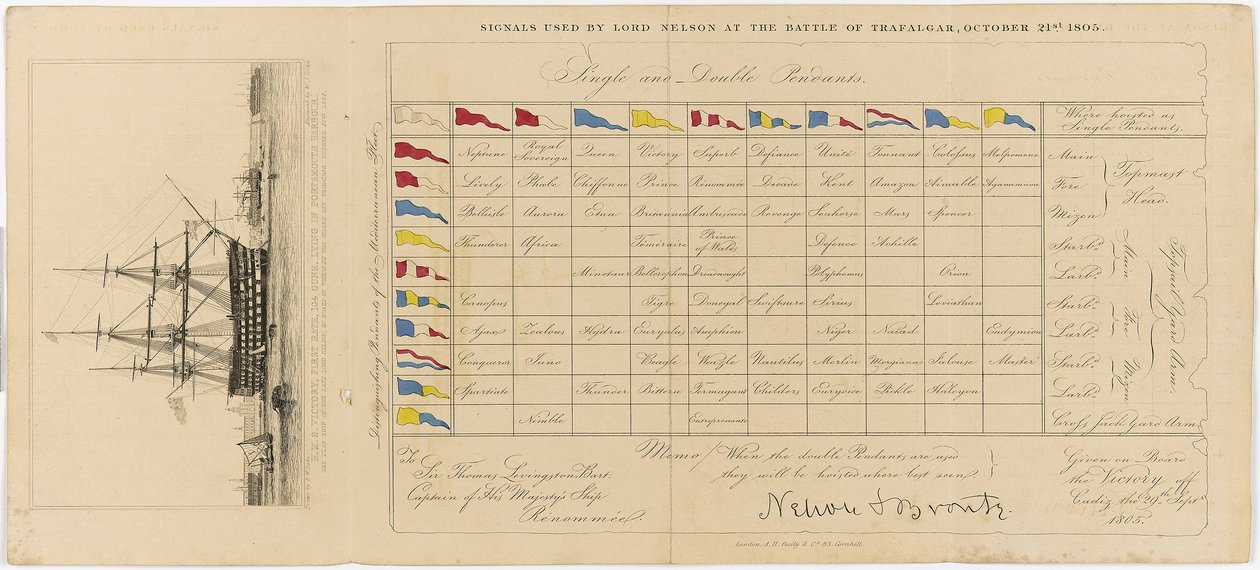 SIGNALS USED BY LORD NELSON AT THE BATTLE OF TRAFALGAR, OCTOBER 21st 1805.
Single and Double Pendants.
Where hoisted as
Single Pendants.
Neptune Royal Sovereign Queen Victory Superb Defiance Unité Tonnant Colossus Melpomene Main
Lively Phœbe Chiffonne Prince Renommée Decade Kent Amazon Aimable Agamemnon Fore
Belleisle Aurora Etna Britannia Ambuscade Revenge Seahorse Mars Spencer Mizen
Topmast
Head.
Thunderer Africa Téméraire Prince of Wales Defence Achille Starbd.
Minotaur Bellerophon Dreadnought Polyphemus Orion Larbd.
Main
Canopus Tigre Donegal Swiftsure Sirius Leviathan Starbd.
Ajax Zealous Hydra Euryalus Amphion Niger Naiad Endymion Larbd.
Fore
Conqueror Juno Beagle Weazle Nautilus Merlin Morgiana Jalouse Martin Starbd.
Spartiate Thunder Bittern Termagant Childers Eurydice Pickle Halcyon Larbd.
Mizen
Topsail Yard Arm.
Nimble Entreprenante Cross Jack Yard Arm
Distinguishing Pendants of the Mediterranean Fleet
To
Sir Thomas Levingston Bart.
Captain of His Majesty's Ship
Renommée.
Memo/ When the double Pendants are used
they will be hoisted where best seen.
Nelson & Bronte.
Given on Board
the Victory off
Cadiz the 29th Septr
1805.
London, A. H. Baily & Co. 83, Cornhill.
H.M.S. VICTORY, FIRST RATE, 104 GUNS, LYING IN PORTSMOUTH HARBOUR.